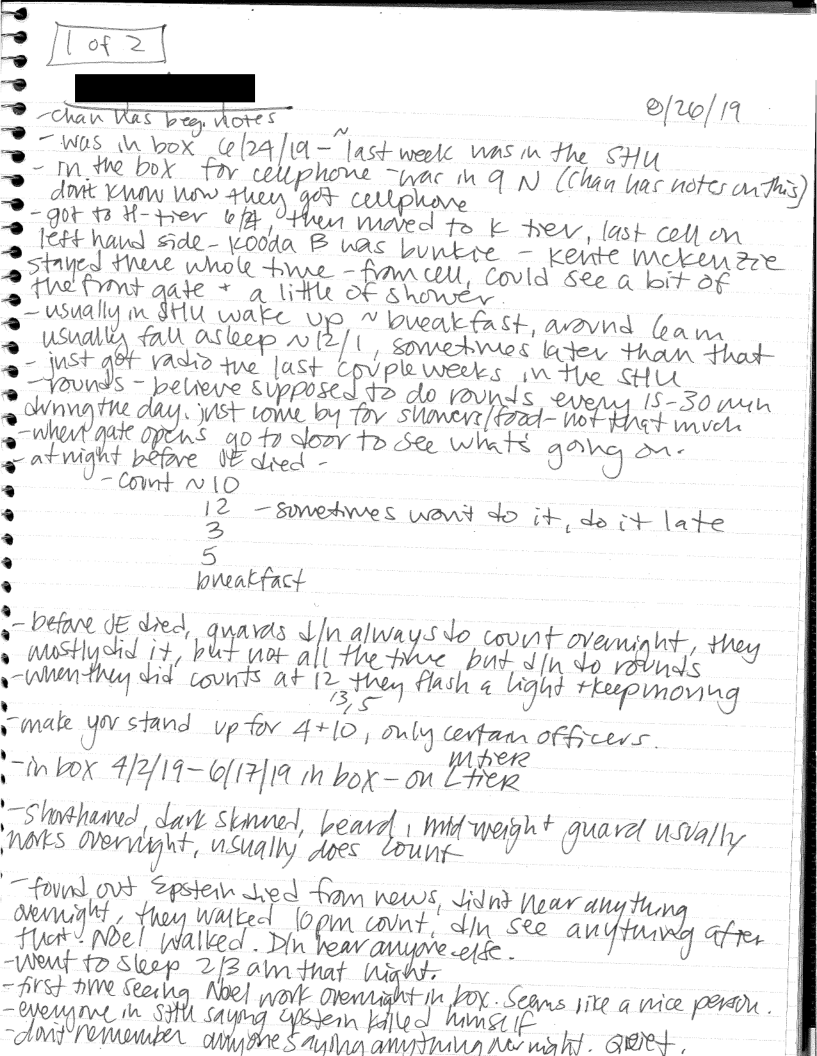 1 of 2
8/26/19
- Chan has beg. notes
- was in box 6/24/19 - ~last week was in the SHU
- in the box for cellphone - was in 9 N (Chan has notes on this)
don't know how they got cellphone
- got to H-tier 6/24, then moved to K tier, last cell on
left hand side - Kooda B was bunkie - Kente McKenzie
stayed there whole time - from cell, could see a bit of
the front gate + a little of shower.
- usually in SHU wake up ~ breakfast, around 6am
usually fall asleep ~ 12/1, sometimes later than that
- just got radio the last couple weeks in the SHU
- rounds - believe supposed to do rounds every 15-30 min
during the day. just come by for showers/food - not that much
- when gate opens go to door to see what's going on.
- at night before JE died -
- count ~ 10
12 - sometimes won't do it, do it late
3
5
breakfast
- before JE died, guards d/n always do count overnight, they
mostly did it, but not all the time but d/n do rounds
- when they did counts at 12 they flash a light + keep moving
13, 5
- make you stand up for 4 + 10, only certain officers.
M tier
- in box 4/2/19 - 6/17/19 in box - on L tier
- shorthaired, dark skinned, beard, mid weight guard usually
works overnight, usually does count
- found out Epstein died from news, didn't hear anything
overnight, they walked 10pm count, d/n see anything after
that. Noel walked. D/n hear anyone else.
- went to sleep 2/3 am that night.
- first time seeing Noel work overnight in box. Seems like a nice person.
- everyone in SHU saying Epstein killed himself
- don't remember anyone saying anything overnight. Quiet.